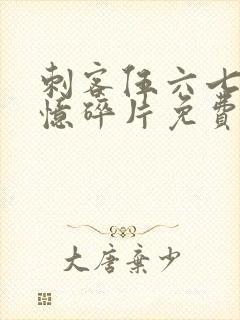 刺客伍六七
憶碎片免費
大唐棄少